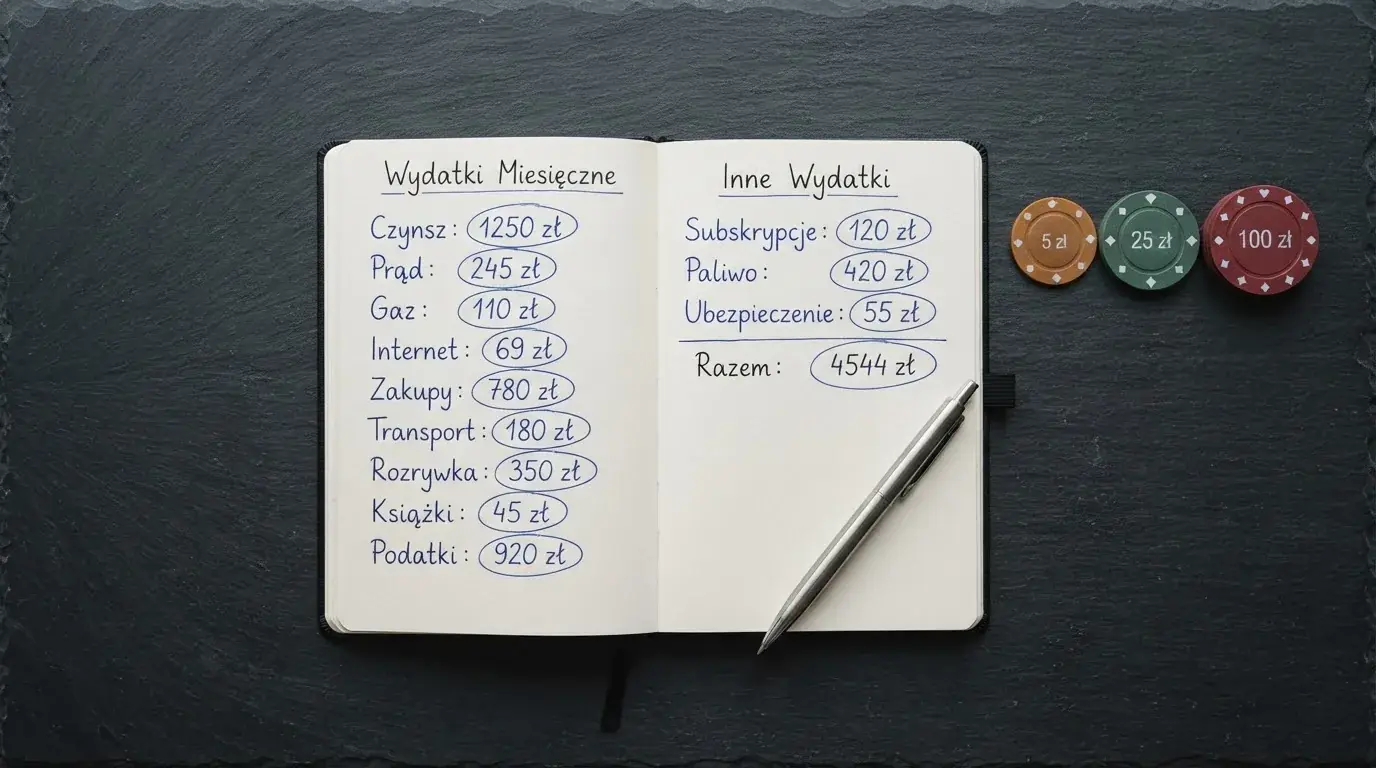 Wydatki Miesięczne
Czynsz: 1250 zł
Prąd: 245 zł
Gaz: 110 zł
Internet: 69 zł
Zakupy: 780 zł
Transport: 180 zł
Rozrywka: 350 zł
Książki: 45 zł
Podatki: 920 zł
Inne Wydatki
Subskrypcje: 120 zł
Paliwo: 420 zł
Ubezpieczenie: 55 zł
Razem: 4544 zł
5 zł
25 zł
100 zł